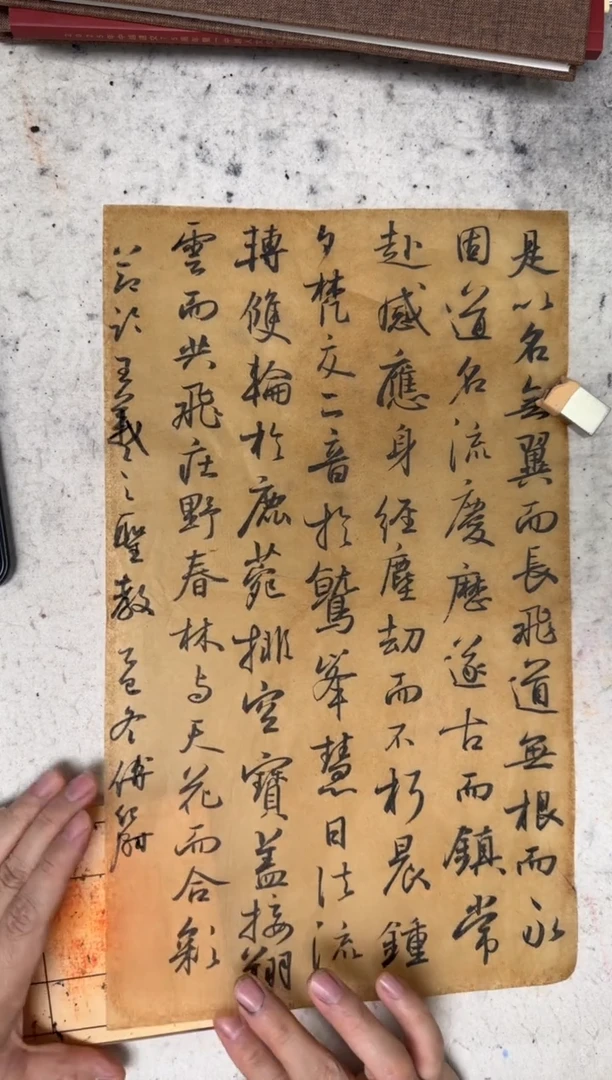 是以名無翼而長飛道無根而永
固道名流慶歷遂古而鎮常
赴感應身經塵劫而不朽晨鍾
夕梵交二音於鷲峯慧日法流
轉雙輪於鹿菀排空寶蓋接翔
雲而共飛莊野春林与天花而合彩
節臨王羲之聖教 冬傅